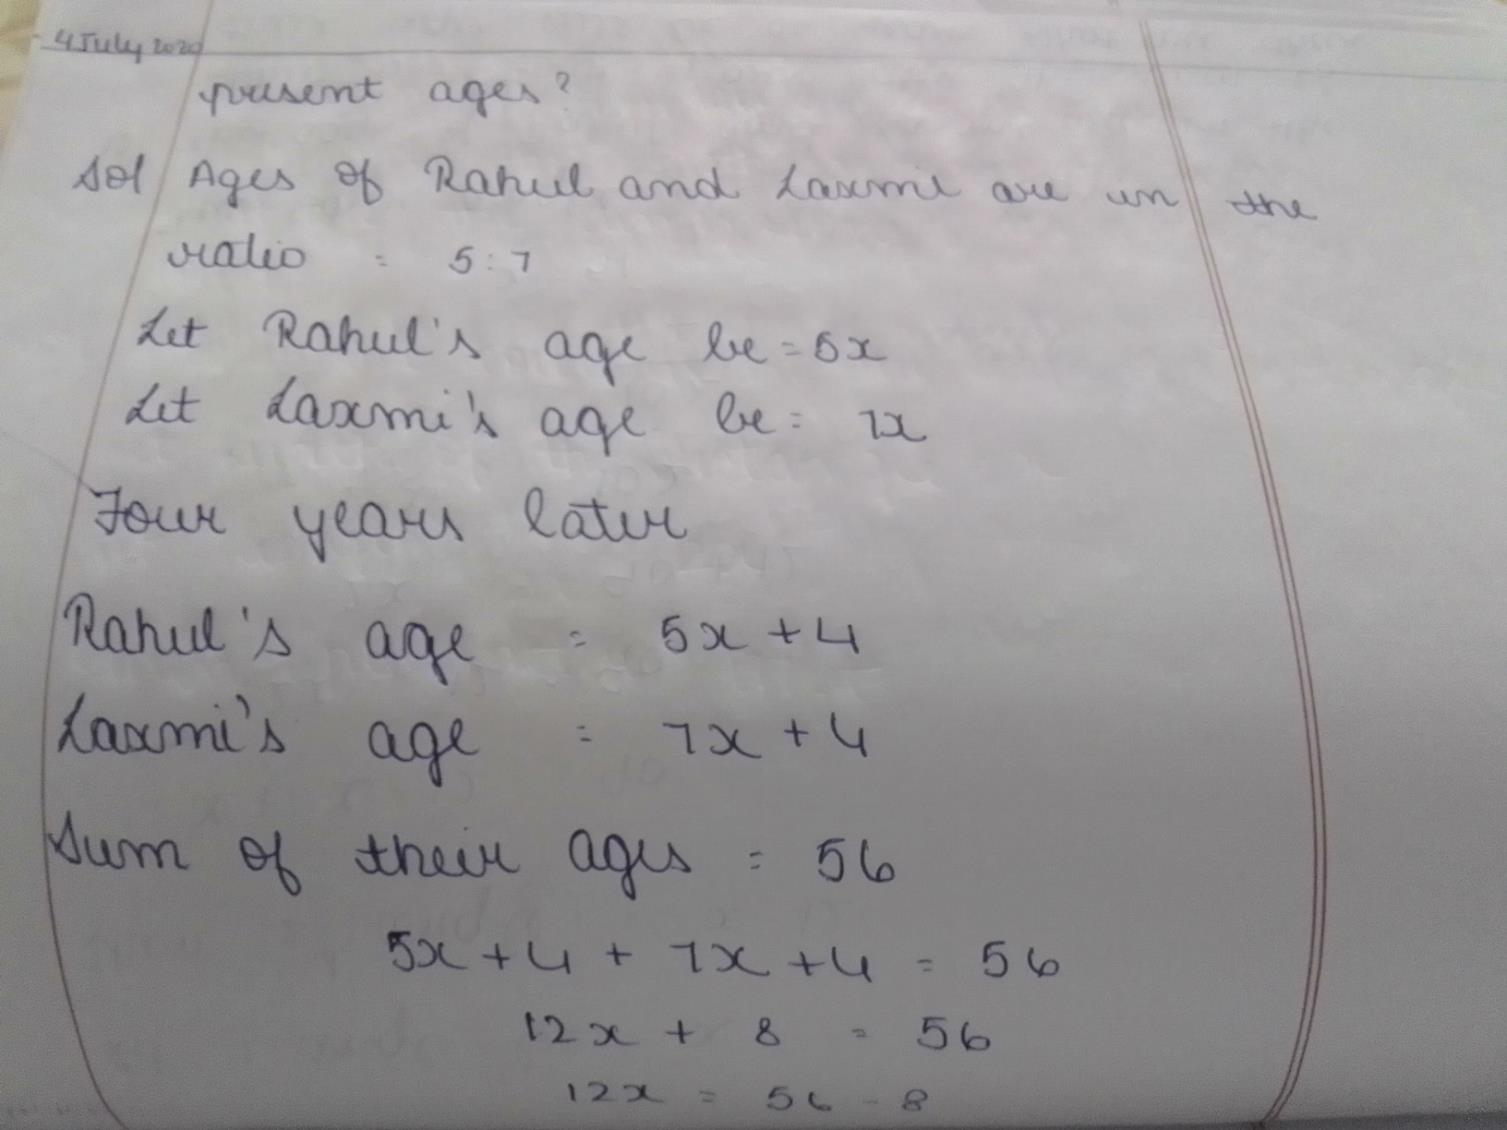 4 July 2020
present ages?
Sol Ages of Rahul and Laxmi are in the
ratio = 5:7
Let Rahul's age be = 5x
Let Laxmi's age be = 7x
Four years later
Rahul's age = 5x + 4
Laxmi's age = 7x + 4
Sum of their ages = 56
5x + 4 + 7x + 4 = 56
12x + 8 = 56
12x = 56 - 8